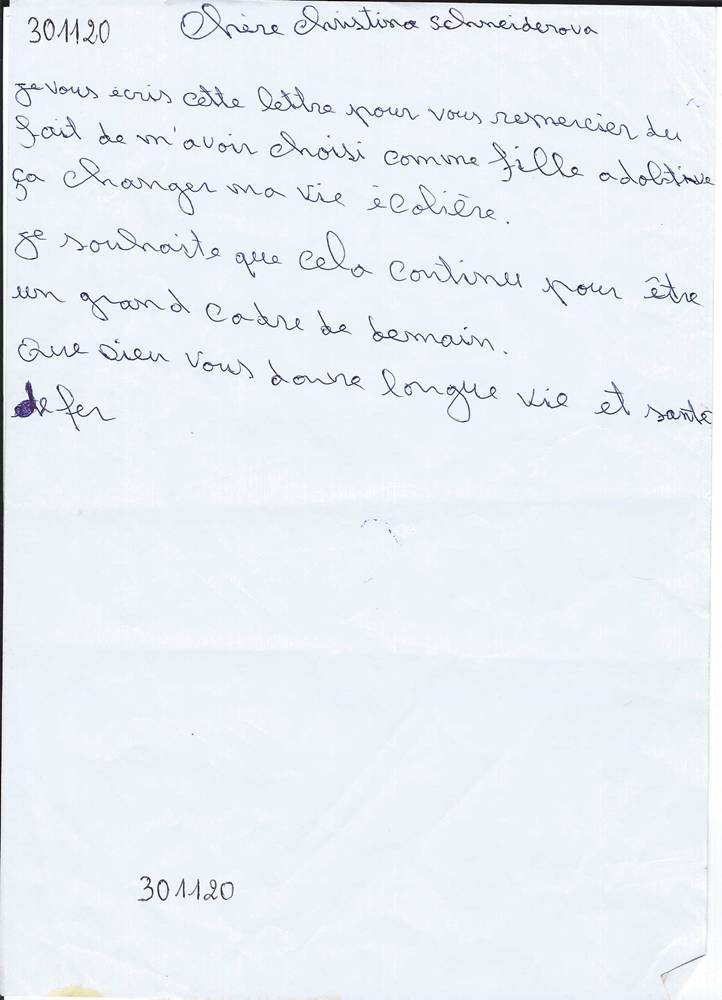 301120
Chère Christina Schneiderova
je vous écris cette lettre pour vous remercier du
fait de m'avoir choisi comme fille adobtive
ça changer ma vie écolière.
je souhaite que cela continu pour être
un grand cadre de demain.
Que Dieu vous donne longue vie et santé
de fer
301120